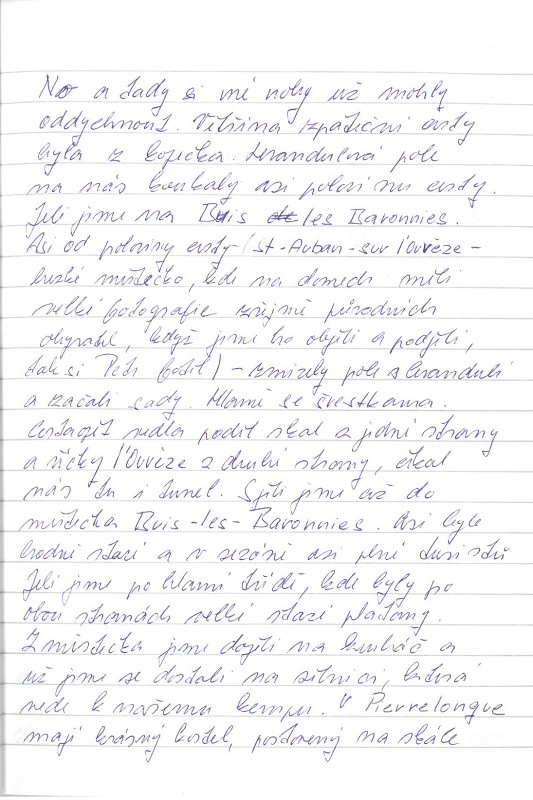 No a tady si mé nohy už mohly
oddychnout. Většina zpáteční cesty
byla z kopečka. Levandulová pole
na nás koukaly asi polovinu cesty.
Jeli jsme na Buis de les Baronnies.
Asi od poloviny cesty (St-Auban-sur l'Ouvèze -
hezké městečko, kde na domech měli
velké fotografie zřejmě původních
obyvatel, když jsme ho objeli a podjeli,
tak si Petr fotil) - zmizely pole s levandulí
a začali sady. Hlavně se švestkama.
Cesta opět vedla podél skal z jedné strany
a říčky l'Ouvèze z druhé strany, čekal
nás tu i tunel. Sjeli jsme až do
městečka Buis-les-Baronnies. Asi bylo
hodně staré a v sezóně asi plné turistů
Jeli jsme po hlavní třídě, kde byly po
obou stranách velké staré platany.
Z městečka jsme dojeli na kruháč a
už jsme se dostali na silnici, která
vede k našemu kempu. V Pierrelongue
mají krásný kostel, postavený na skále